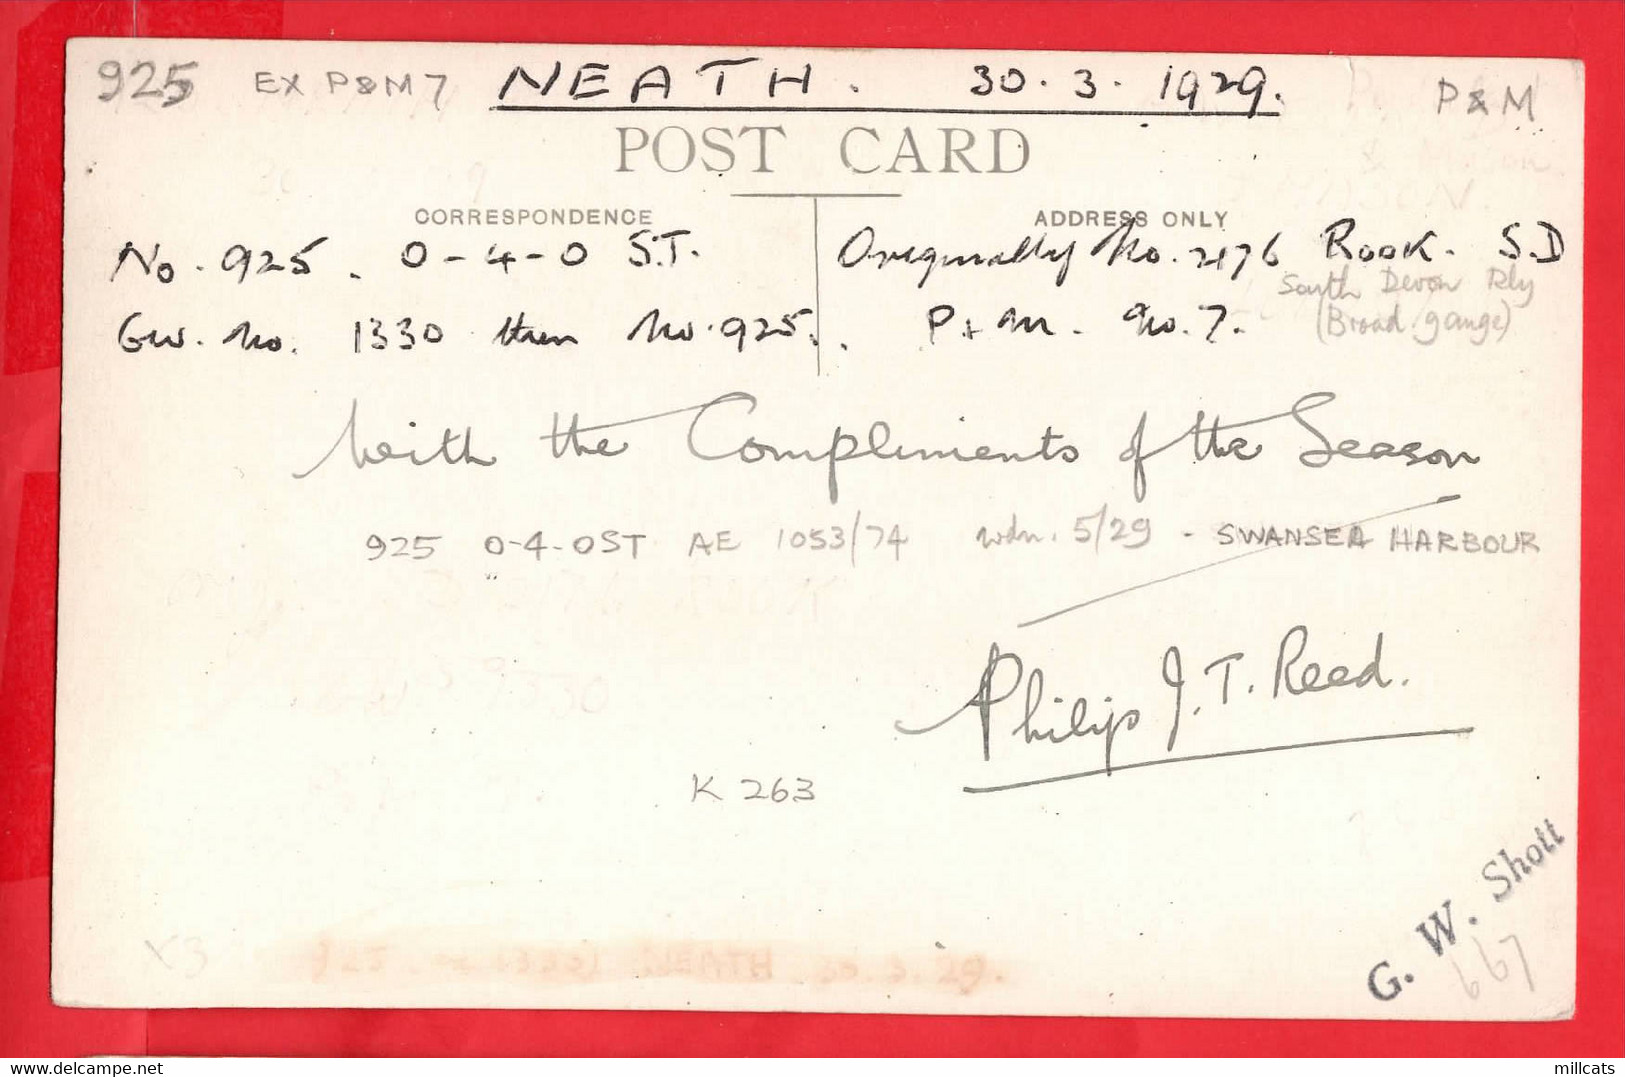 925 EX P&M 7 NEATH. 30.3.1929. P&M
POST CARD
CORRESPONDENCE ADDRESS ONLY
No. 925. 0-4-0 S.T. Originally No. 2176 Rook. S.D
South Devon Rly
GW. No. 1330 then No. 925. P+M. No. 7. (Broad gauge)
With the Compliments of the Season
925 0-4-0ST AE 1053/74 wdn. 5/29 - SWANSEA HARBOUR
Philip J.T. Reed.
K 263
G. W. Shott
667
X3
NEATH 30.3.29.
millcats